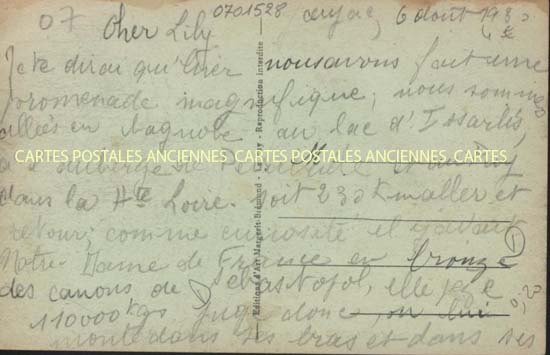 07 0701528 6 Août 193
Cher Lily
Je te dirai qu'hier nous avons fait une
promenade magnifique, nous sommes
allés en au lac d'Issarlès,
CARTES POSTALES ANCIENNES CARTES POSTALES ANCIENNES CARTES
dans la Hte Loire. soit 230 Km aller et
retour; comme curiosité il y avait
Notre-Dame de France en bronze
des canons de Sébastopol, elle pèse
110000 kgs juge donc, on lui
monte dans les bras et dans ses
Editions d'Art Margerit-Brémond - Le Puy - Reproduction interdite
0,20